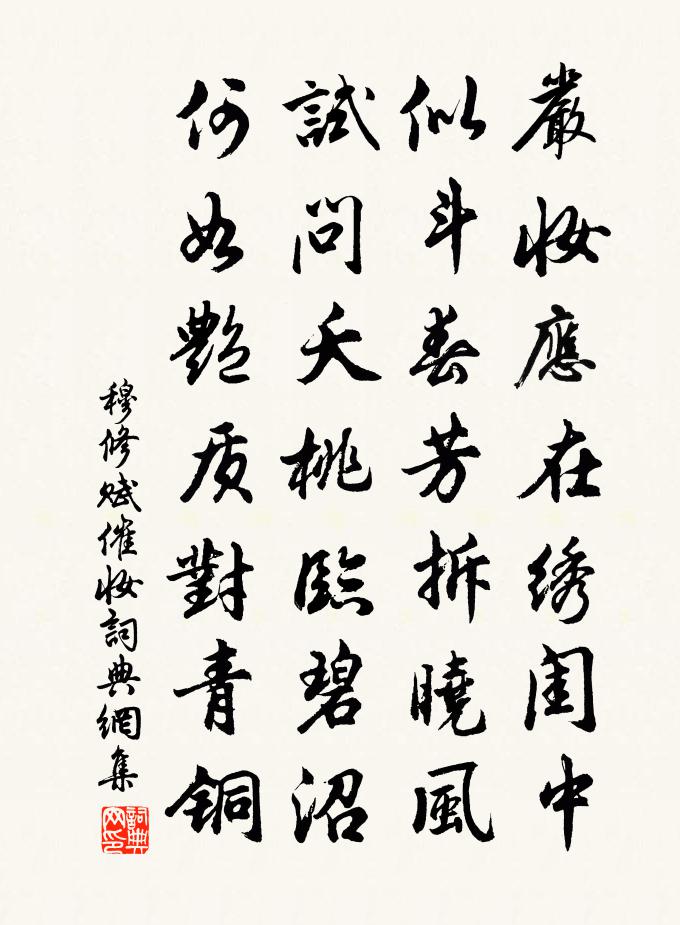 嚴妝應在绣閨中
似斗春芳拆曉風
試問夭桃臨碧沼
何如艷质對青铜
穆修賦催妝詞典網集
詞典
网印